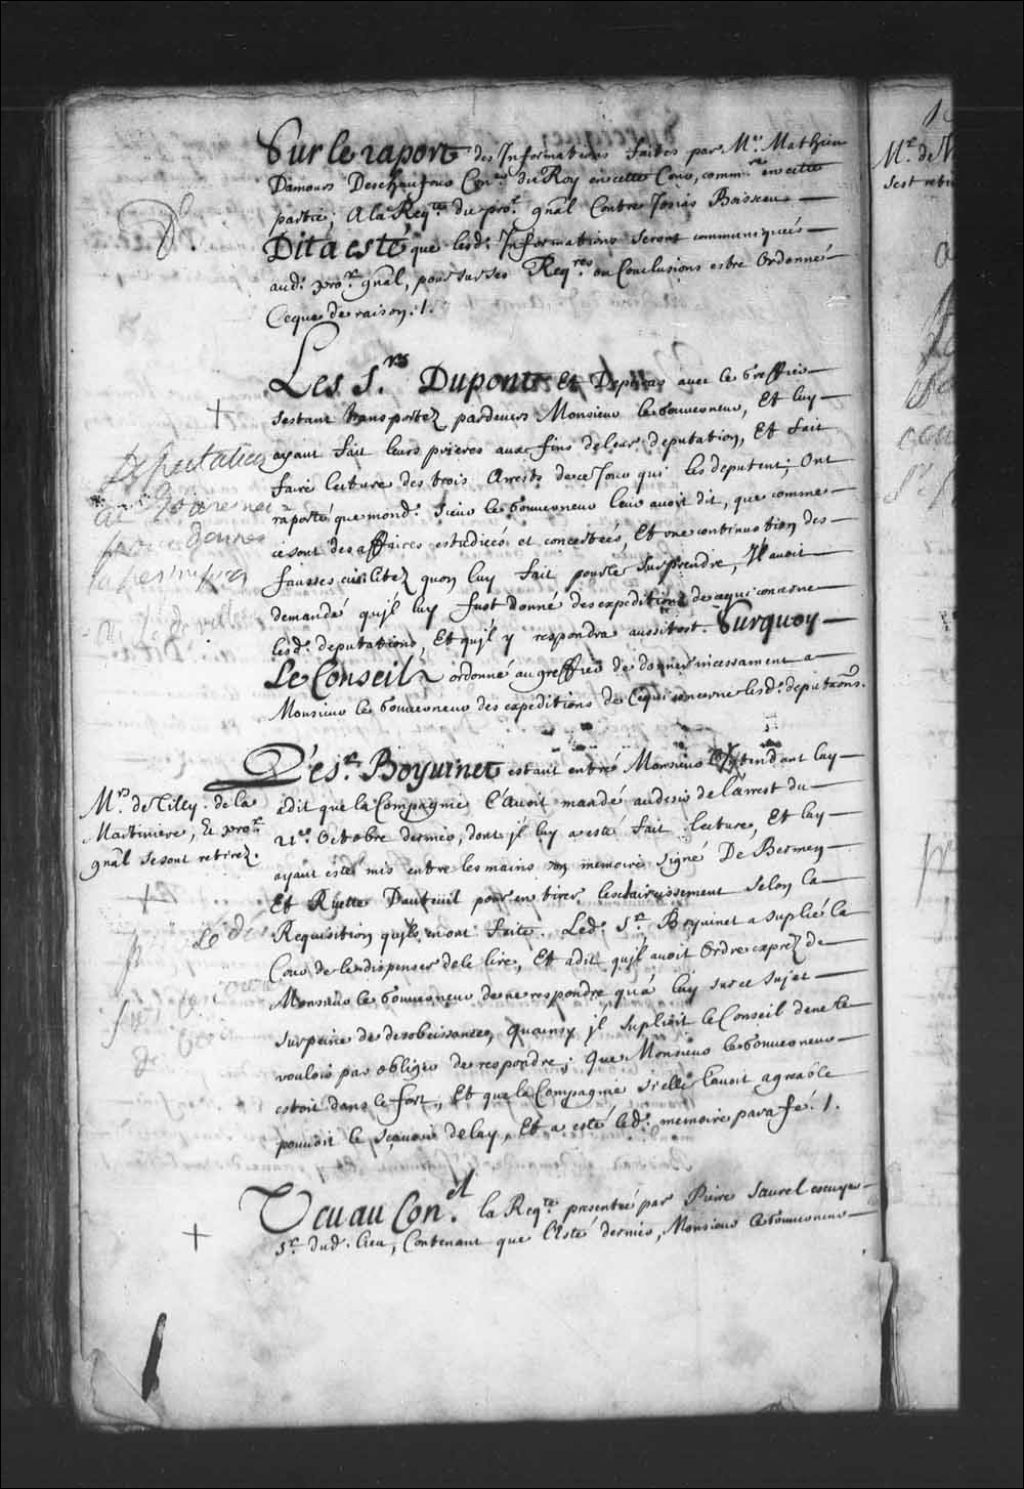 Sur le raport des Informations faites par Mre. Mathieu
Damours Deschaufous Conr. du Roy en cette Cour, commre. en cette
partie; A la Reqte. du pror. gnãl Contre Josias Boisseau
Dit a esté que lesd. Informations seront communiqueés
aud. pror. gnãl, pour sur ses Reqres. ou Conclusions estre Ordonné
Ceque de raison. /.
Les Srs. Dupont Et Depeiras avec le Greffier
sestant transportez pardevers Monsieur le Gouverneur, Et luy
ayant fait leurs prieres aux fins deleur deputation, Et fait
faire lecture des trois Arrests dece Jour qui les deputent; Ont
raporté que mond. Sieur le Gouverneur leur avoit dit, que comme
ce sont des affaires estudieés et concertées, Et une continuation des
fausses civilitez quon luy fait pour le surprendre, Il avoit
demandé qu'jl luy fust donné des expeditions de cequi concerne
lesd. deputations, Et qu'jl y respondra aussitost. Surquoy
Le Conseil a ordonné au greffier de donner incessament a
Monsieur le Gouverneur des expeditions de Cequi concerne lesd. deputaõns.
Deputation
au Gouverneur
pour donner
la permission
Le Sr. Boyuinet estant entré Monsieur L'Intendant luy
a dit que la Compagnie l'avoit mandé au desir de l'arrest du
21e. Octobre dernier, dont jl luy a esté fait lecture, Et luy
ayant esté mis entre les mains un memoire signé De Bermen
Et Rüette Dauteuil pour en tirer lesclaircissement selon la
Requisition qu'jls en ont faite. Led. Sr. Boyuinet a suplié la
Cour de le dispenser dele lire, Et a dit qu'jl avoit Ordre exprez de
Monsieur le Gouverneur de ne respondre qu'a luy sur ce sujet
sur peine de desobeissance, quainsy jl suplioit le Conseil dene le
vouloir pas obliger de respondre; Que Monsieur le Gouverneur
estoit dans le fort, Et que la Compagnie si elle l'avoit agreable
pouvoit le sçavoir de luy, Et a esté led. memoire parafé. /.
Mrs. de Tilly. de la
Martiniere, Et pror.
gnãl se sont retirez.
Veu au Conel. la Reqte. presentée par Pierre Saurel escuyer
Sr. dud. lieu, Contenant que l'Esté dernier, Monsieur le Gouverneur
Mr. de V
sest reti